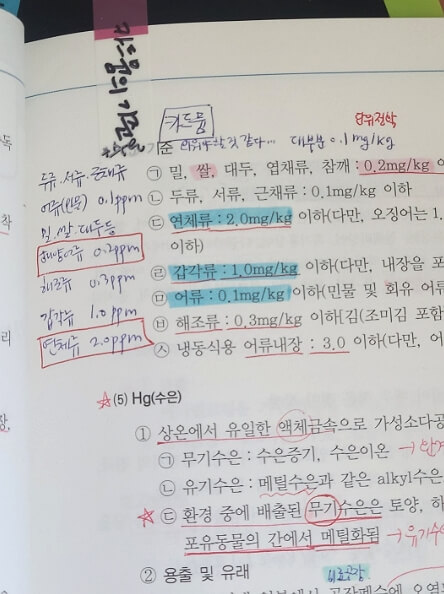 카드뮴의 기준
카드뮴
단위정확
준 외워야 할 것 같다... 대부분 0.1mg/kg
㉠ 밀, 쌀, 대두, 엽채류, 참깨 : 0.2mg/kg 이
㉡ 두류, 서류, 근채류 : 0.1mg/kg 이하
㉢ 연체류 : 2.0mg/kg 이하(다만, 오징어는 1.
이하)
㉣ 갑각류 : 1.0mg/kg 이하(다만, 내장을 포
㉤ 어류 : 0.1mg/kg 이하(민물 및 회유 어류
㉥ 해조류 : 0.3mg/kg 이하[김(조미김 포함
㉦ 냉동식용 어류내장 : 3.0 이하(다만, 어
두류·서류·근채류
어류(민물) 0.1ppm
밀·쌀·대두등
0.2ppm
해조류 0.3ppm
갑각류 1.0ppm
연체류 2.0ppm
☆(5) Hg(수은)
① 상온에서 유일한 액체금속으로 가성소다공
㉠ 무기수은 : 수은증기, 수은이온
㉡ 유기수은 : 메틸수은과 같은 alkyl수은
☆ ㉢ 환경 중에 배출된 무기수은은 토양, 하
포유동물의 간에서 메틸화됨 → 유기수은
② 용출 및 유래